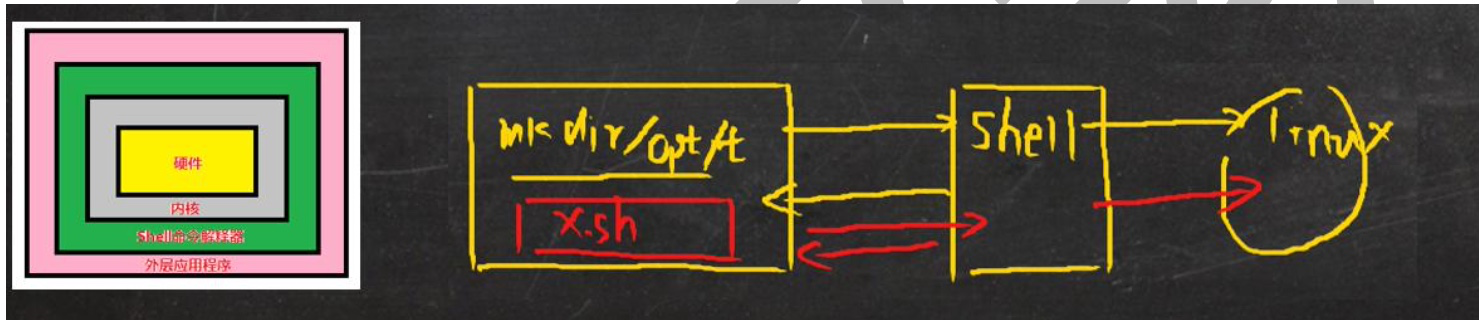 硬件
内核
Shell命令解释器
外层应用程序
mkdir/opt/t
x.sh
Shell
Linux